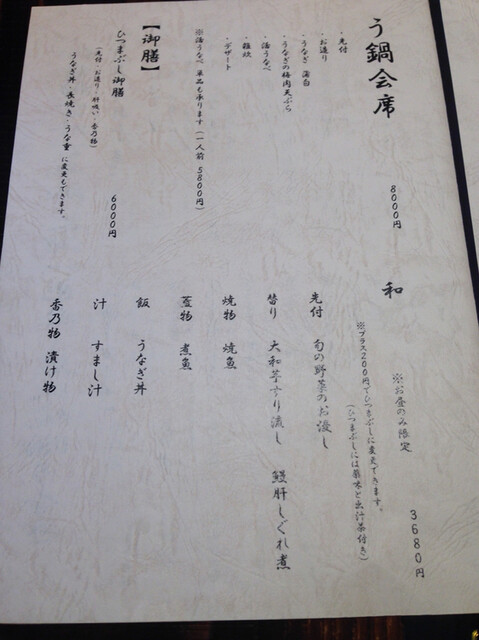 う鍋会席 8000円
・先付
・お造り
・うなぎ 蒲白
・うなぎの梅肉天ぷら
・湯うなべ
・雑炊
・デザート
※湯うなべ 単品も承ります(一人前 5800円)
【御膳】
ひつまぶし御膳 6000円
(先付・お造り・肝吸い・香乃物)
うなぎ丼・長焼き・うな重 に変更もできます。
和 ※お昼のみ限定 3680円
※プラス200円でひつまぶしに変更できます。
(ひつまぶしには薬味と出汁茶付き)
先付 旬の野菜のお浸し
替り 大和芋すり流し 鰻肝しぐれ煮
焼物 焼魚
蓋物 煮魚
飯 うなぎ丼
汁 すまし汁
香乃物 漬け物